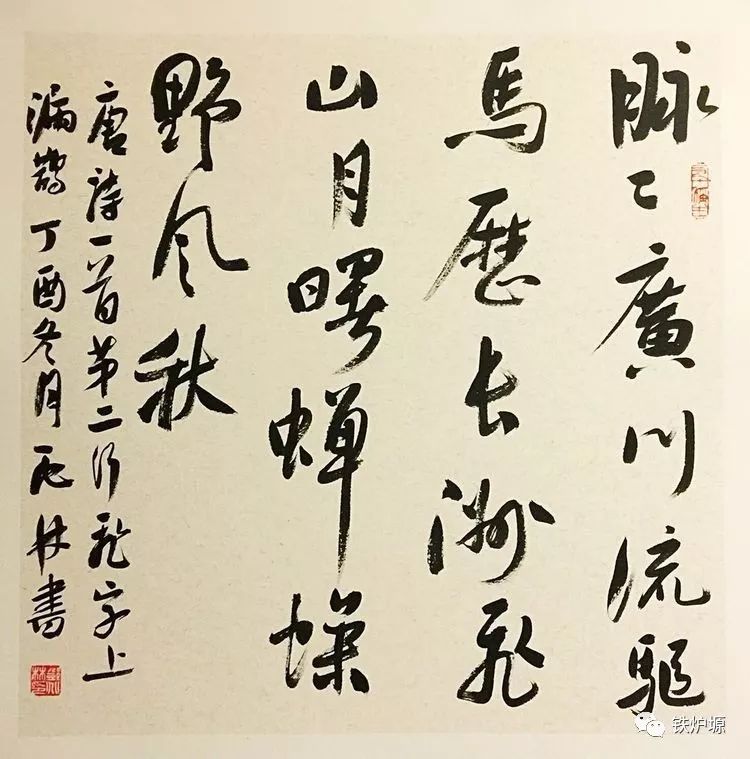 脉〻廣川流驅
馬歷長洲飛
山月曙蝉噪
野风秋
唐詩一首第二行飛字上
漏鵲丁酉冬月林書
铁炉塬